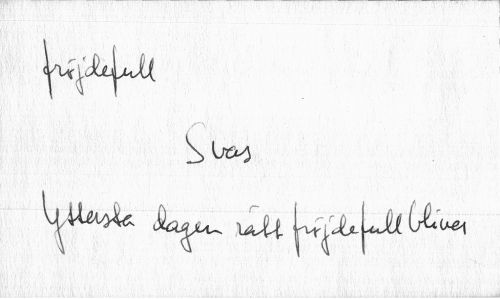 fröjdefull
Svas
Yttersta dagen rätt fröjdefull bliver